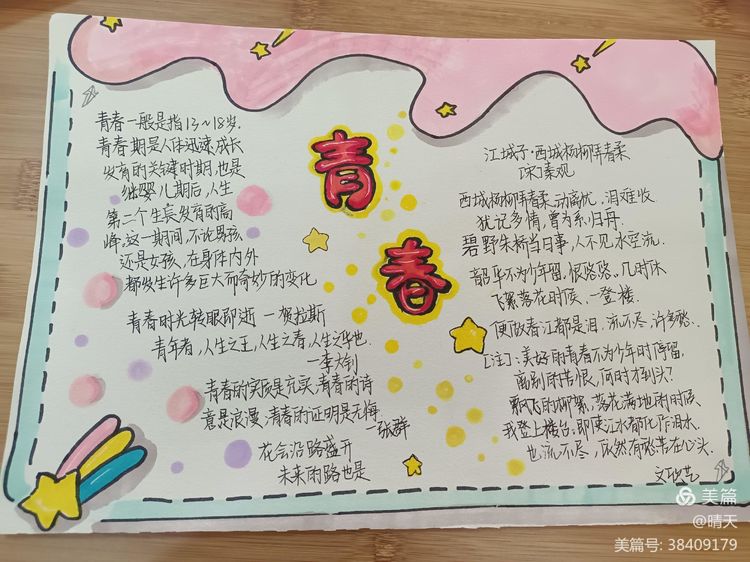 青春
青春一般是指13~18岁.
青春期是人体迅速成长
发育的关键时期,也是
继婴儿期后,人生
第二个生长发育的高
峰.这一期间,不论男孩
还是女孩,在身体内外
都发生许多巨大而奇妙的变化
青春时光转眼即逝 一贺拉斯
青年者,人生之王,人生之春,人生之华也.
一李大钊
青春的实质是充实,青春的诗
意是浪漫,青春的证明是无悔
一张群
花会沿路盛开
未来的路也是
江城子·西城杨柳弄春柔
[宋]秦观
西城杨柳弄春柔.动离忧,泪难收
犹记多情,曾为系归舟.
碧野朱桥当日事,人不见,水空流.
韶华不为少年留.恨悠悠,几时休
飞絮落花时候、一登楼.
便做春江都是泪.流不尽,许多愁.
[注]:美好的青春不为少年时停留,
离别的苦恨,何时才到头?
飘飞的柳絮,落花满地的时候
我登上楼台.即使江水都化作泪水
也流不尽,依然有愁苦在心头.
美篇
@晴天
美篇号: 38409179